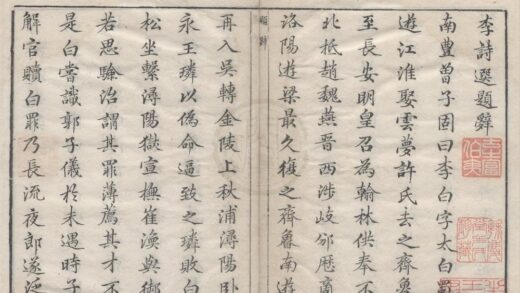 李詩選題辭
南豊曾子固曰李白字太白
遊江淮娶雲夢許氏去之齊魯
至長安明皇召為翰林供奉不
北抵趙魏燕晉西涉岐邠歷商
洛陽遊梁最久復之齊魯南遊
題辭
再入吳轉金陵上秋浦潯陽臥
永王璘以偽命逼致之璘敗白
松坐繫潯陽獄宣撫崔渙與御
若思驗治謂其罪薄薦其才不
是白嘗識郭子儀於未遇時子
解官贖白罪乃長流夜郎遂泛